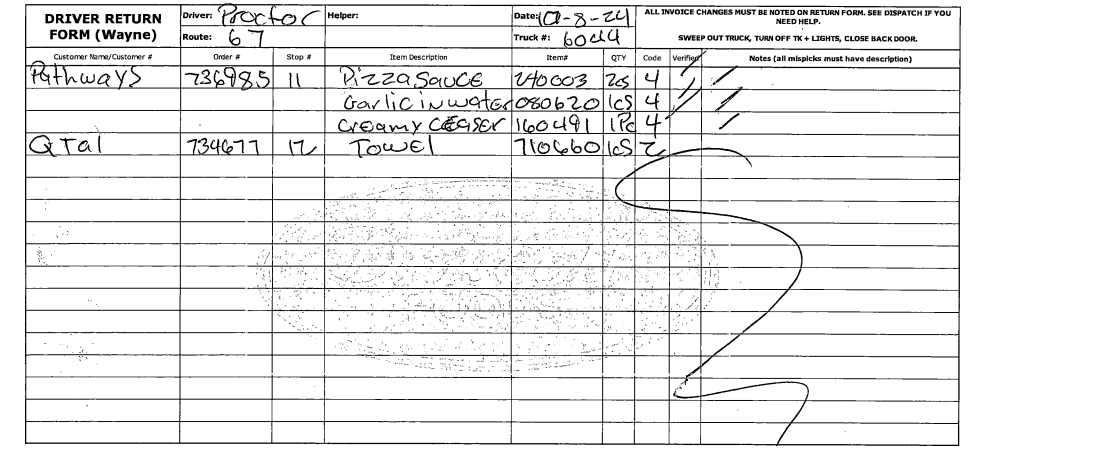 DRIVER RETURN FORM (Wayne) Driver: Proctor Helper: Date: 10-8-24 ALL INVOICE CHANGES MUST BE NOTED ON RETURN FORM. SEE DISPATCH IF YOU NEED HELP.
Route: 67 Truck #: 6044 SWEEP OUT TRUCK, TURN OFF TK + LIGHTS, CLOSE BACK DOOR.
Customer Name/Customer # Order # Stop # Item Description Item# QTY Code Verified Notes (all mispicks must have description)
Pathways 736985 11 Pizza Sauce 240003 2cs 4
Garlic in water 080620 1cS 4
Creamy CEaser 160491 1Pc 4
QTal 734677 12 Towel 710660 1cS 2